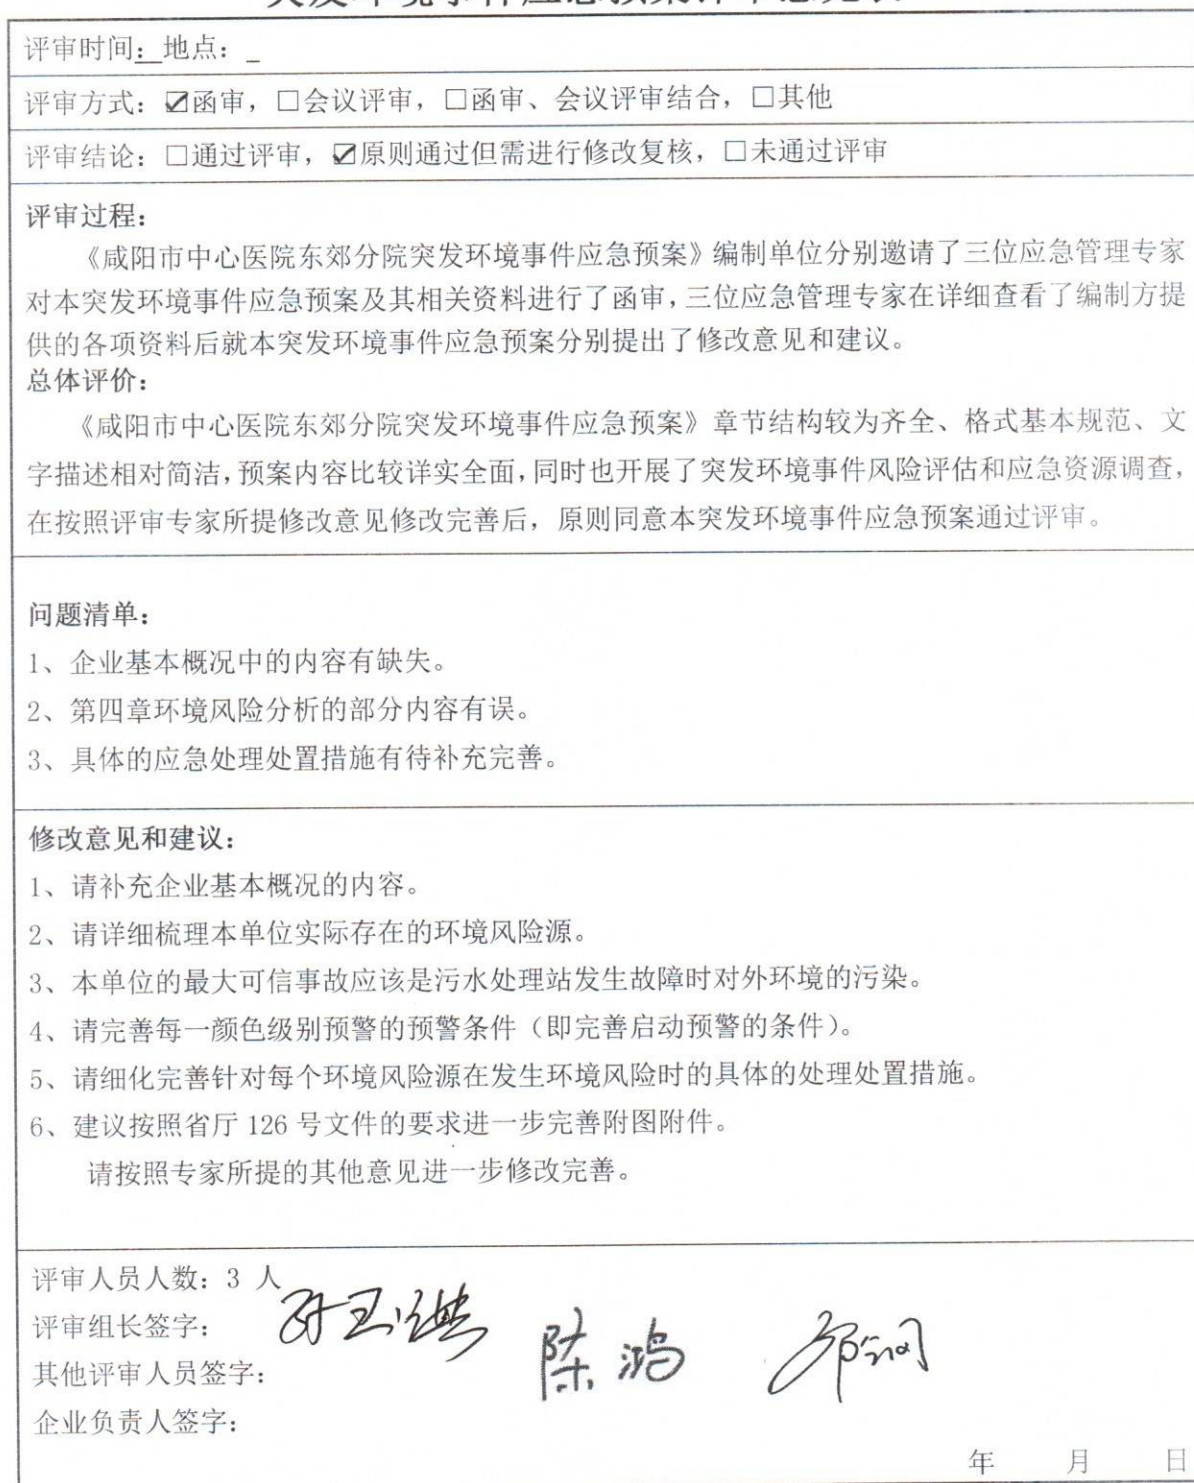 突发环境事件应急预案评审意见表
评审时间：_地点：_
评审方式：☑函审，□会议评审，□函审、会议评审结合，□其他
评审结论：□通过评审，☑原则通过但需进行修改复核，□未通过评审
评审过程：
《咸阳市中心医院东郊分院突发环境事件应急预案》编制单位分别邀请了三位应急管理专家
对本突发环境事件应急预案及其相关资料进行了函审，三位应急管理专家在详细查看了编制方提
供的各项资料后就本突发环境事件应急预案分别提出了修改意见和建议。
总体评价：
《咸阳市中心医院东郊分院突发环境事件应急预案》章节结构较为齐全、格式基本规范、文
字描述相对简洁，预案内容比较详实全面，同时也开展了突发环境事件风险评估和应急资源调查，
在按照评审专家所提修改意见修改完善后，原则同意本突发环境事件应急预案通过评审。
问题清单：
1、企业基本概况中的内容有缺失。
2、第四章环境风险分析的部分内容有误。
3、具体的应急处理处置措施有待补充完善。
修改意见和建议：
1、请补充企业基本概况的内容。
2、请详细梳理本单位实际存在的环境风险源。
3、本单位的最大可信事故应该是污水处理站发生故障时对外环境的污染。
4、请完善每一颜色级别预警的预警条件（即完善启动预警的条件）。
5、请细化完善针对每个环境风险源在发生环境风险时的具体的处理处置措施。
6、建议按照省厅 126 号文件的要求进一步完善附图附件。
请按照专家所提的其他意见进一步修改完善。
评审人员人数：3 人
评审组长签字：
其他评审人员签字： 陈鸿
企业负责人签字：
年 月 日